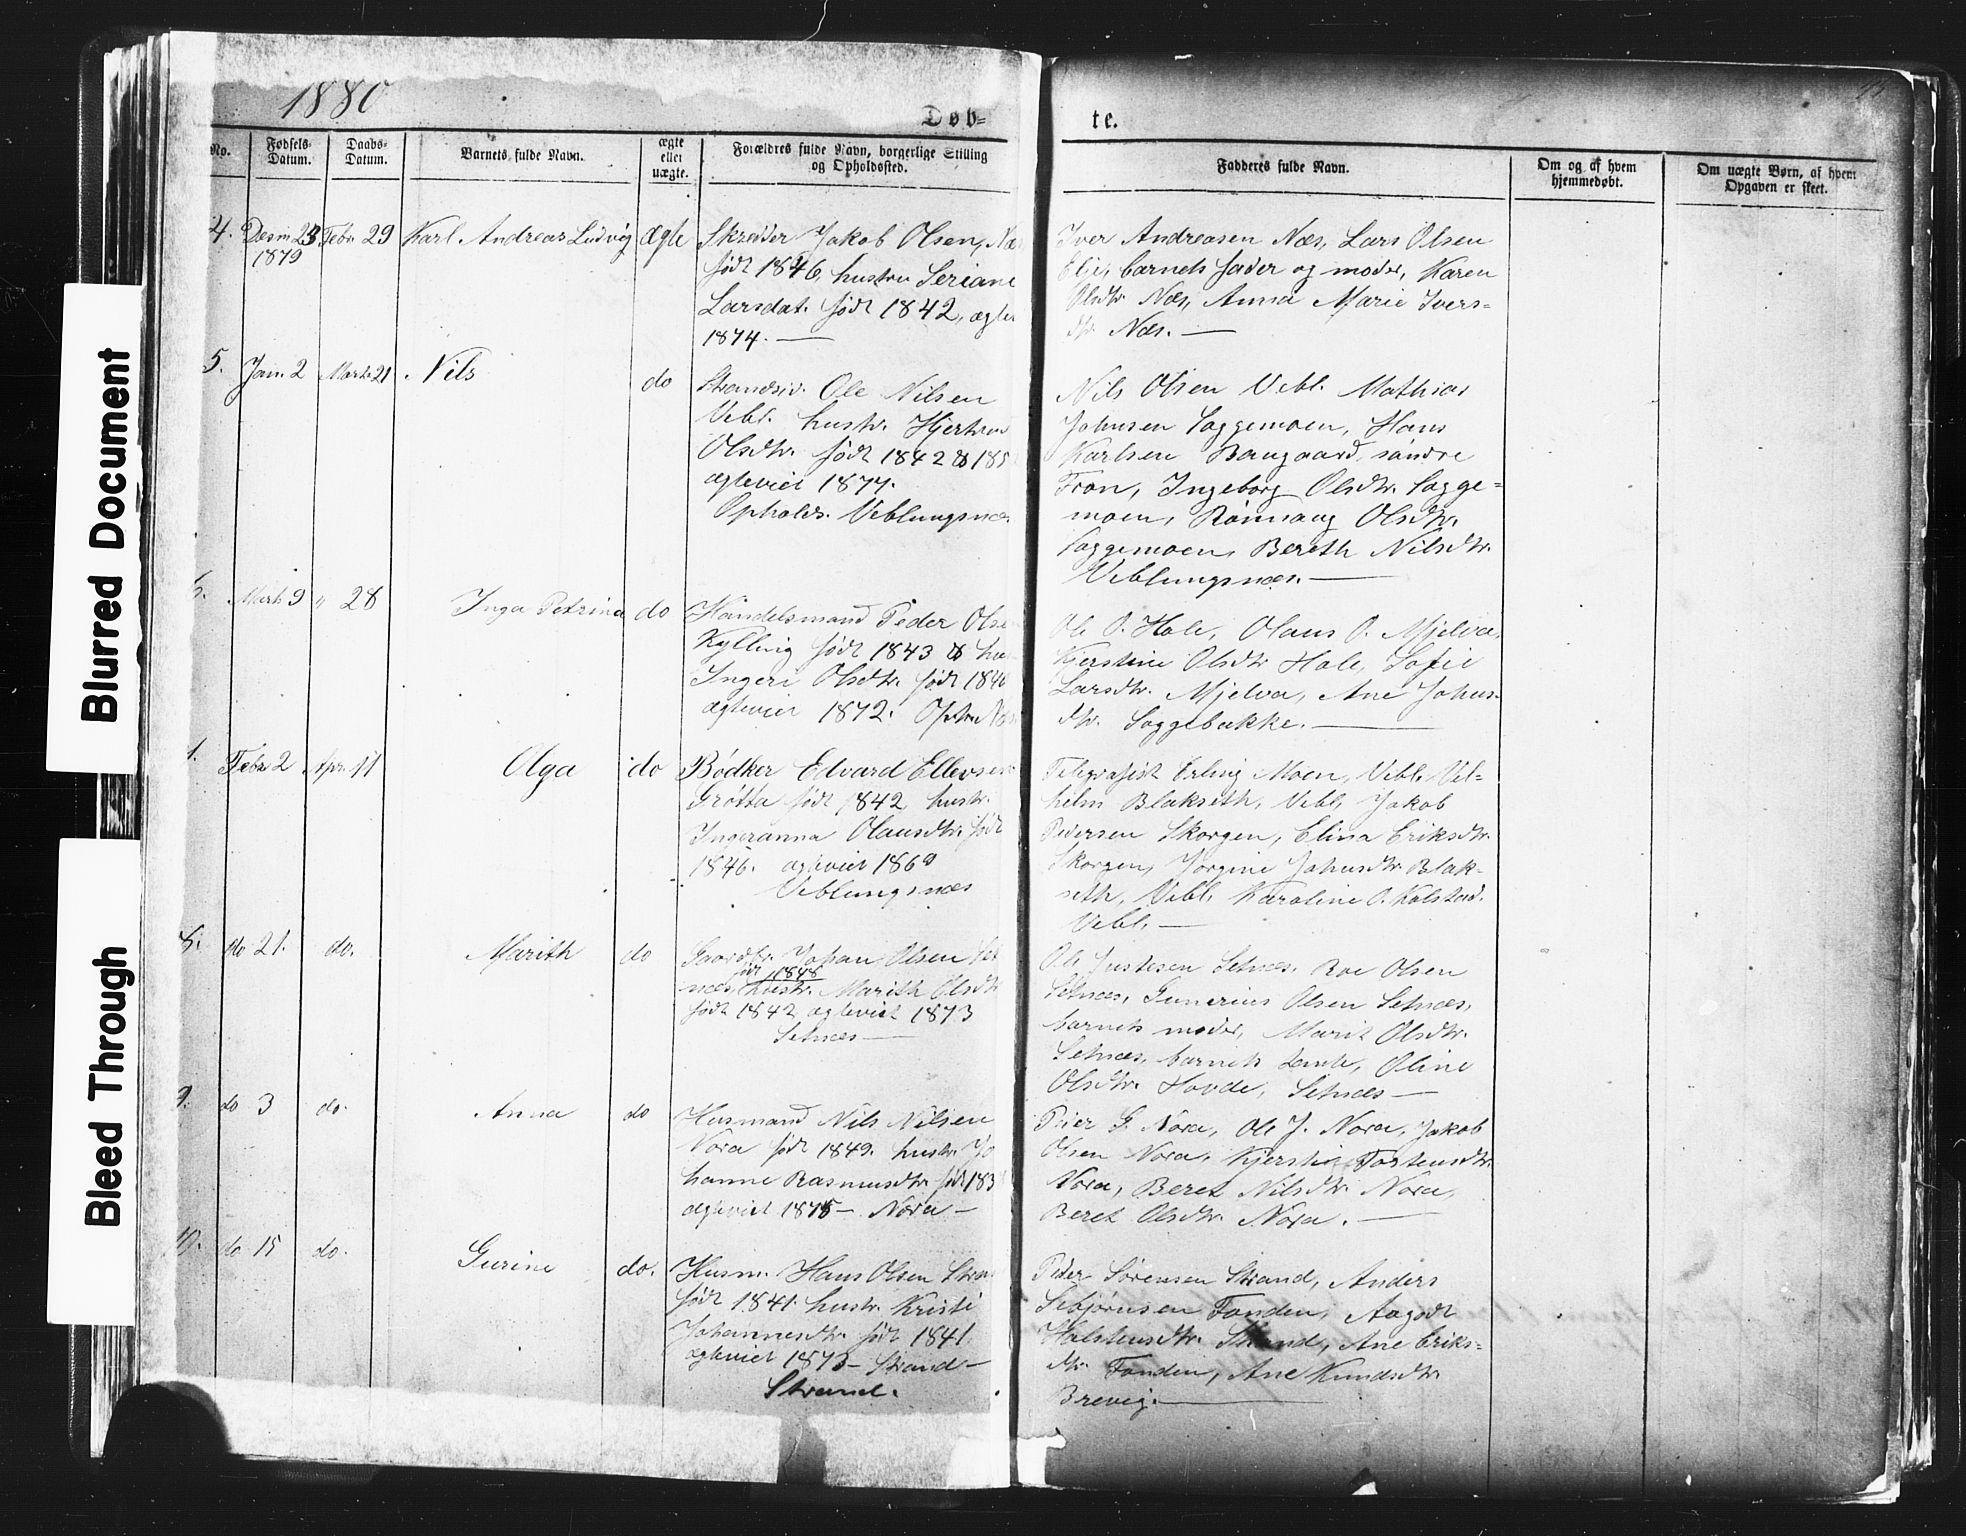 1880
Døb=
te.
No.
Fødsels-
Datum.
Daabs-
Datum.
Barnets fulde Navn.
ægte
eller
uægte.
Forældres fulde Navn, borgerlige Stilling
og Opholdssted.
Faddernes fulde Navn.
Om og af hvem
hjemmedøbt.
Om uægte Børn, af hvem
Opgaven er skeet.
4. Febr 29 Karl Andreas Ludvig ægte
1879
Skredder Jakob Olsen, Næs
født 1846, hustru Seriane
Larsdat. født 1842, ægtev
1874. —
Iver Andreasen Næs, Lars Olsen
barnets fader og moder, Karen
Olsdtr Næs, Anna Marie Ivers-
dtr. Næs. —
5. Jan. 2 Marts 21 Nils do
Strands. Ole Nilsen
Vebl. hustr. Hjertru
Olsdtr. født 1842 & 185
ægteviet 1877.
Opholds. Veblungsnæs
Nils Olsen Vebl. Mathias
Johnsen Soggemoen, Hans
Karlsen Baugaard, søndre
Fron, Ingeborg Olsdtr. Sogge-
moen, Rønnaug Olsdtr.
Soggemoen, Bereth Nilsdtr.
Veblungsnæs. —
6. Marts 9 " 28 Inga Petrina do
Handelsmand Peder Olse
Kylling født 1843 & hu
Ingeri Olsdtr. født 1840
ægteviet 1872. Næs
Ole O. Hole, Olaus O. Mjelva,
Kjerstine Olsdtr Hole, Sofie
Larsdtr. Mjelva, Ane Johns-
dtr. Soggebakke. —
Febr 2 Apr. 11 Olga do
Bødker Edvard Ellevsen
Grøtta født 1842 hustr.
Ingeranna Olausdtr. født
1846. ægteviet 1869
Veblungsnæs
Telegrafist Erling Moen, Vebl. Vil-
helm Blakseth, Vebl. Jakob
Pedersen Skorgen, Elina Eriksdtr.
Skorgen, Jørgine Johnsdtr. Blak-
seth, Vebl. Karoline O. Kolstad.
Vebl. —
8. do 21. do. Marith do
Gaardbr. Johan Olsen Set
født 1848
næs, hustr. Marith Olsdtr
født 1842 ægteviet 1873
Setnæs —
Ole Justesen Setnæs, Roe Olsen
Setnæs, Gunerius Olsen Setnæs,
barnets moder, Marit Olsdtr.
Setnæs, barnets tante, Oline
Olsdtr. Hovde, Setnæs —
9. do 3 do. Anna do
Husmand Nils Nilsen
Nora født 1849. hustr. Jo
hanne Rasmusdtr. født 183
ægteviet 1875 — Nora —
Peder G. Nora, Ole J. Nora, Jakob
Olsen Nora, Kjersti Torstensdtr.
Nora, Beret Nilsdtr. Nora,
Beret Olsdtr. Nora. —
10. do 15 do. Gurine do.
Husm. Hans Olsen Stran
født 1841. hustr. Kristi
Johannesdtr. født 1841.
ægteviet 1873 — Strand —
Strand.
Peder Sørensen Strand, Anders
Sebjørnsen Fonden, Aagodt
Halstensdtr. Strand, Ane Eriks=
dtr. Fonden, Ane Knudsdtr.
Brevig. —
Blurred Document
Bleed Through